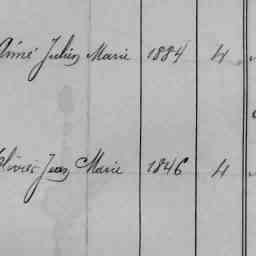 Aimé Julien Marie 1884 4
Olivier Jean Marie 1846 4